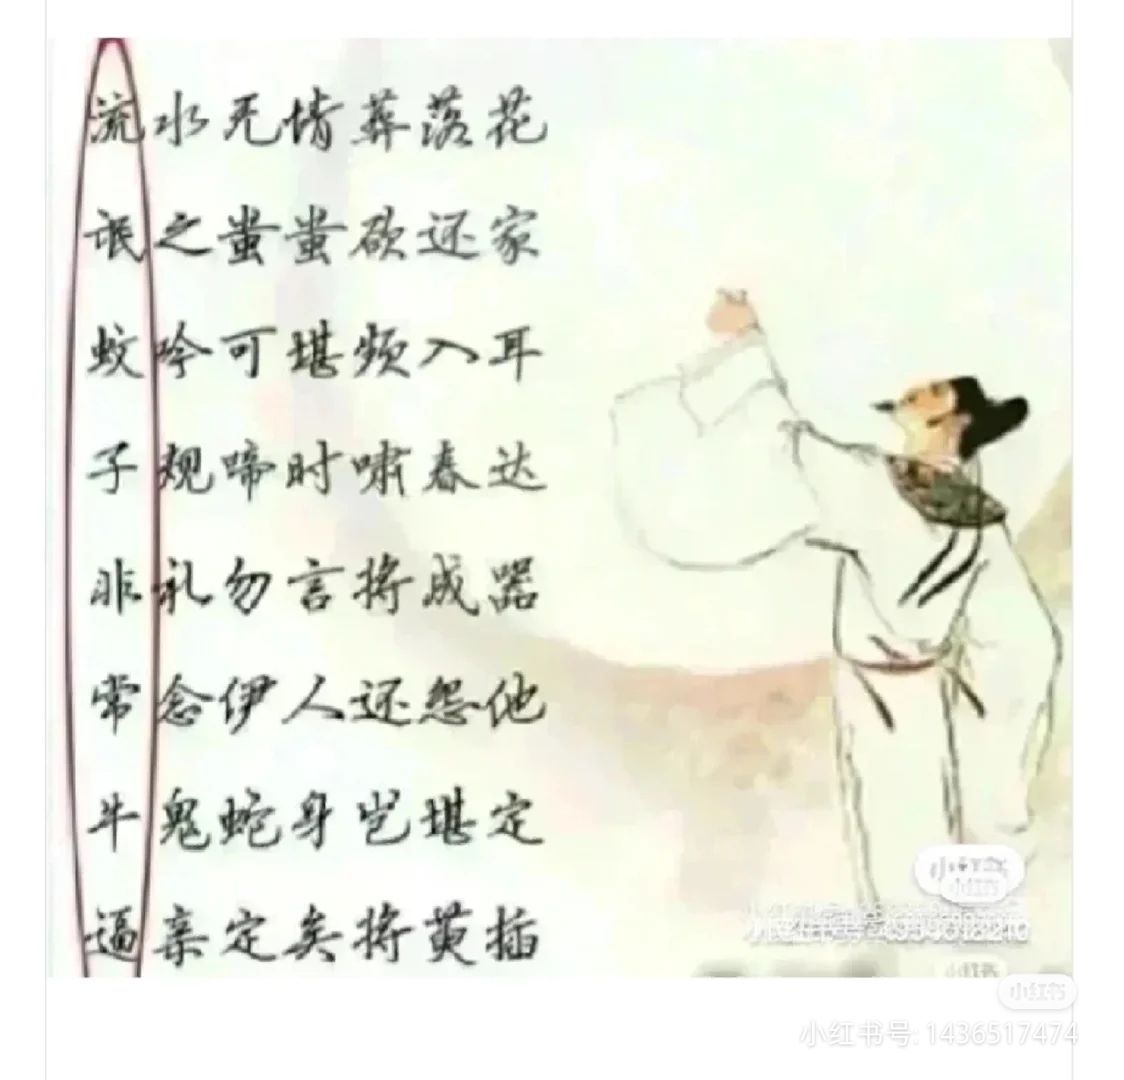 流水无情葬落花
氓之蚩蚩欲还家
蚊吟可堪频入耳
子规啼时啸春达
非礼勿言将成器
常念伊人还怨他
牛鬼蛇身岂堪定
逼亲定矣将黄插
小红书
小红书号: 1436517474